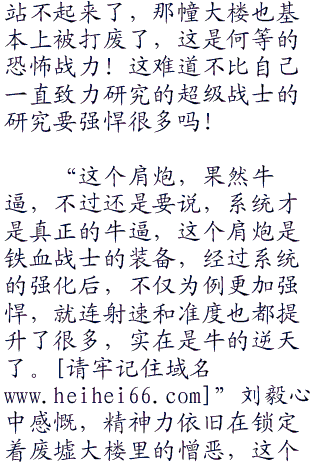 站不起来了，那幢大楼也基
本上被打废了，这是何等的
恐怖战力！这难道不比自己
一直致力研究的超级战士的
研究要强悍很多吗！
“这个肩炮，果然牛
逼，不过还是要说，系统才
是真正的牛逼，这个肩炮是
铁血战士的装备，经过系统
的强化后，不仅为例更加强
悍，就连射速和准度也都提
升了很多，实在是牛的逆天
了。[请牢记住域名
www.heihei66.com]”刘毅心
中感慨，精神力依旧在锁定
着废墟大楼里的憎恶，这个